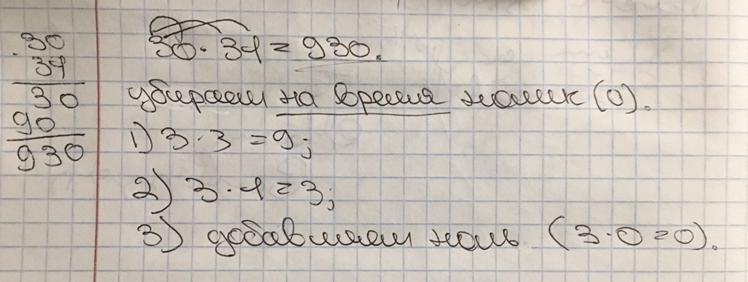 · 30
31
30
90
930
30 · 31 = 930.
убираем на время нолик (0).
1) 3 · 3 = 9;
2) 3 · 1 = 3;
3) добавляем ноль (3 · 0 = 0).